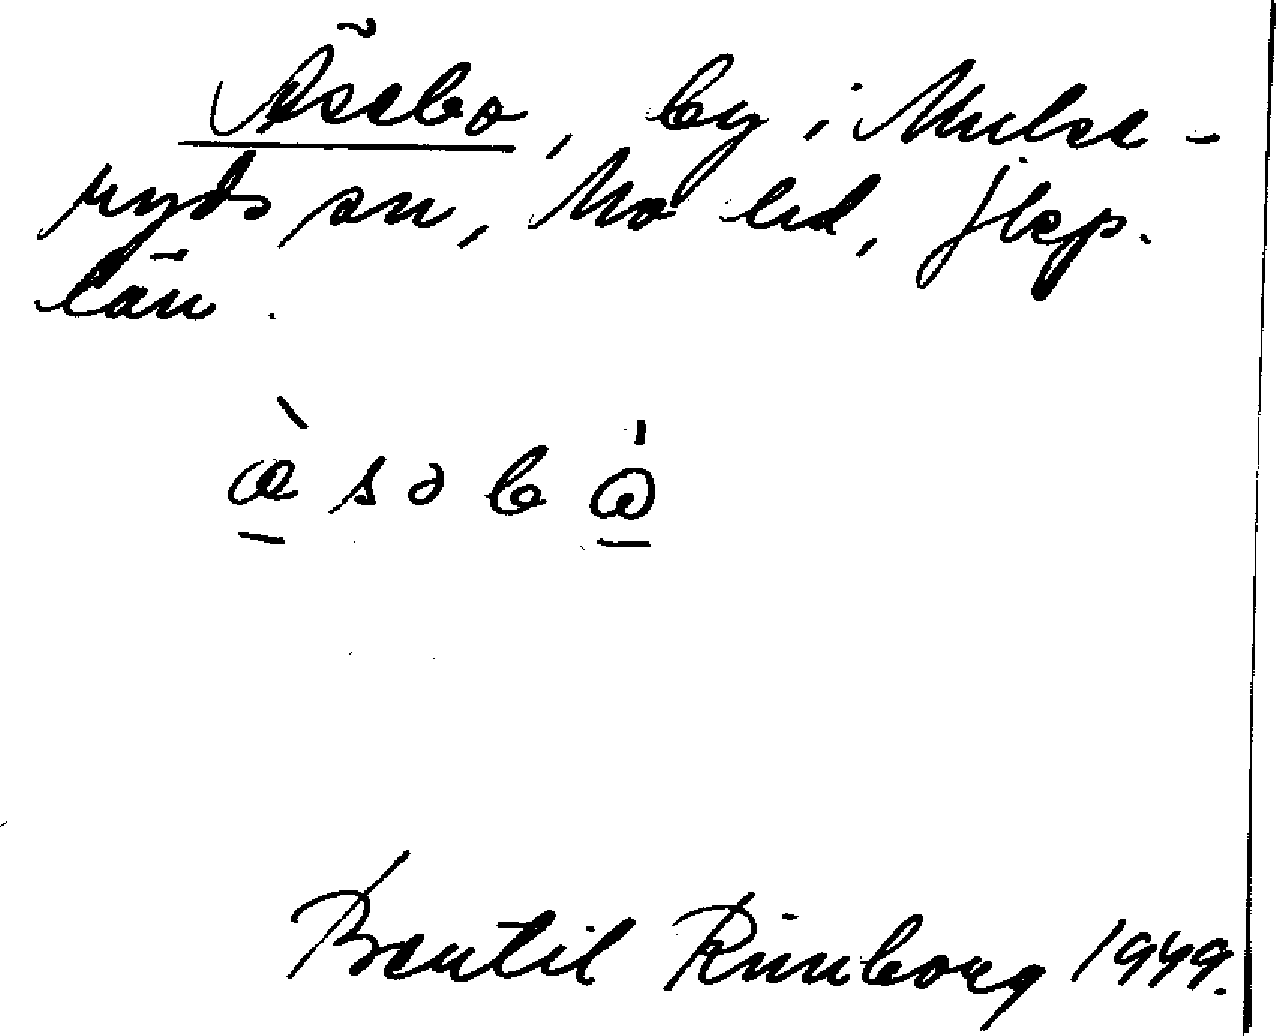 Äsebo, by i Mulse-
ryds sn, Mo hd, Jkp.
län.
Bertil Rimborg 1949.